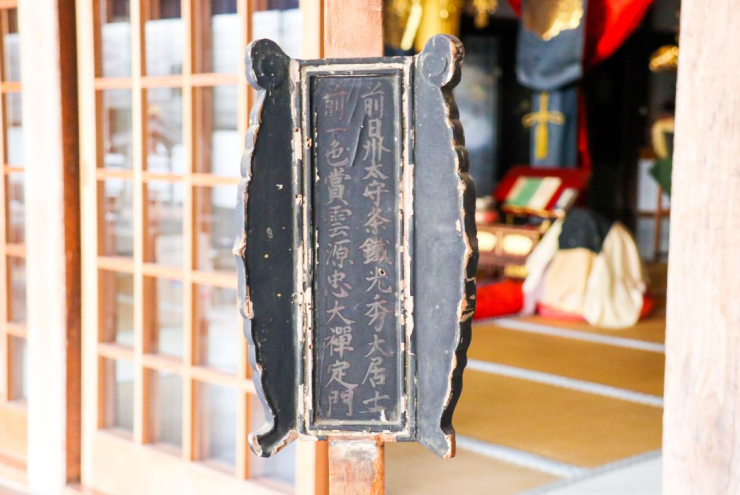 前日州太守条鐵光秀大居士
前一色賞雲源忠大禪定門